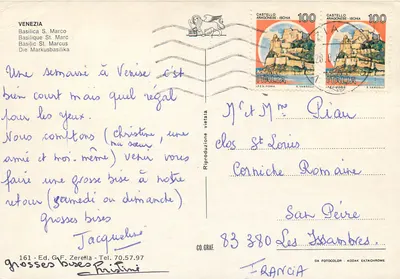 VENEZIA
Basilica S. Marco
Basilique St. Marc
Basilic St. Marcus
Die Markusbasilika
Une semaine à Venise c'est
bien court mais quel régal
pour les yeux.
Nous comptons (Christine, une
ma sœur
amie et moi-même) venir vous
faire une grosse bise à notre
retour (samedi ou dimanche)
grosses bises
Jacqueline
161 - Ed. G.F. Zerella - Tel. 70.57.97
grosses bises Christine
Riproduzione vietata
CASTELLO
ARAGONESE - ISCHIA
100
CASTELLO
ARAGONESE - ISCHIA
100
Mr et Mme Piau
clos St Louis
Corniche Romaine
San Peïre
83 380 Les Issambres.
FRANCIA
CO. GRAF.
DA FOTOCOLOR - KODAK EKTACHROME